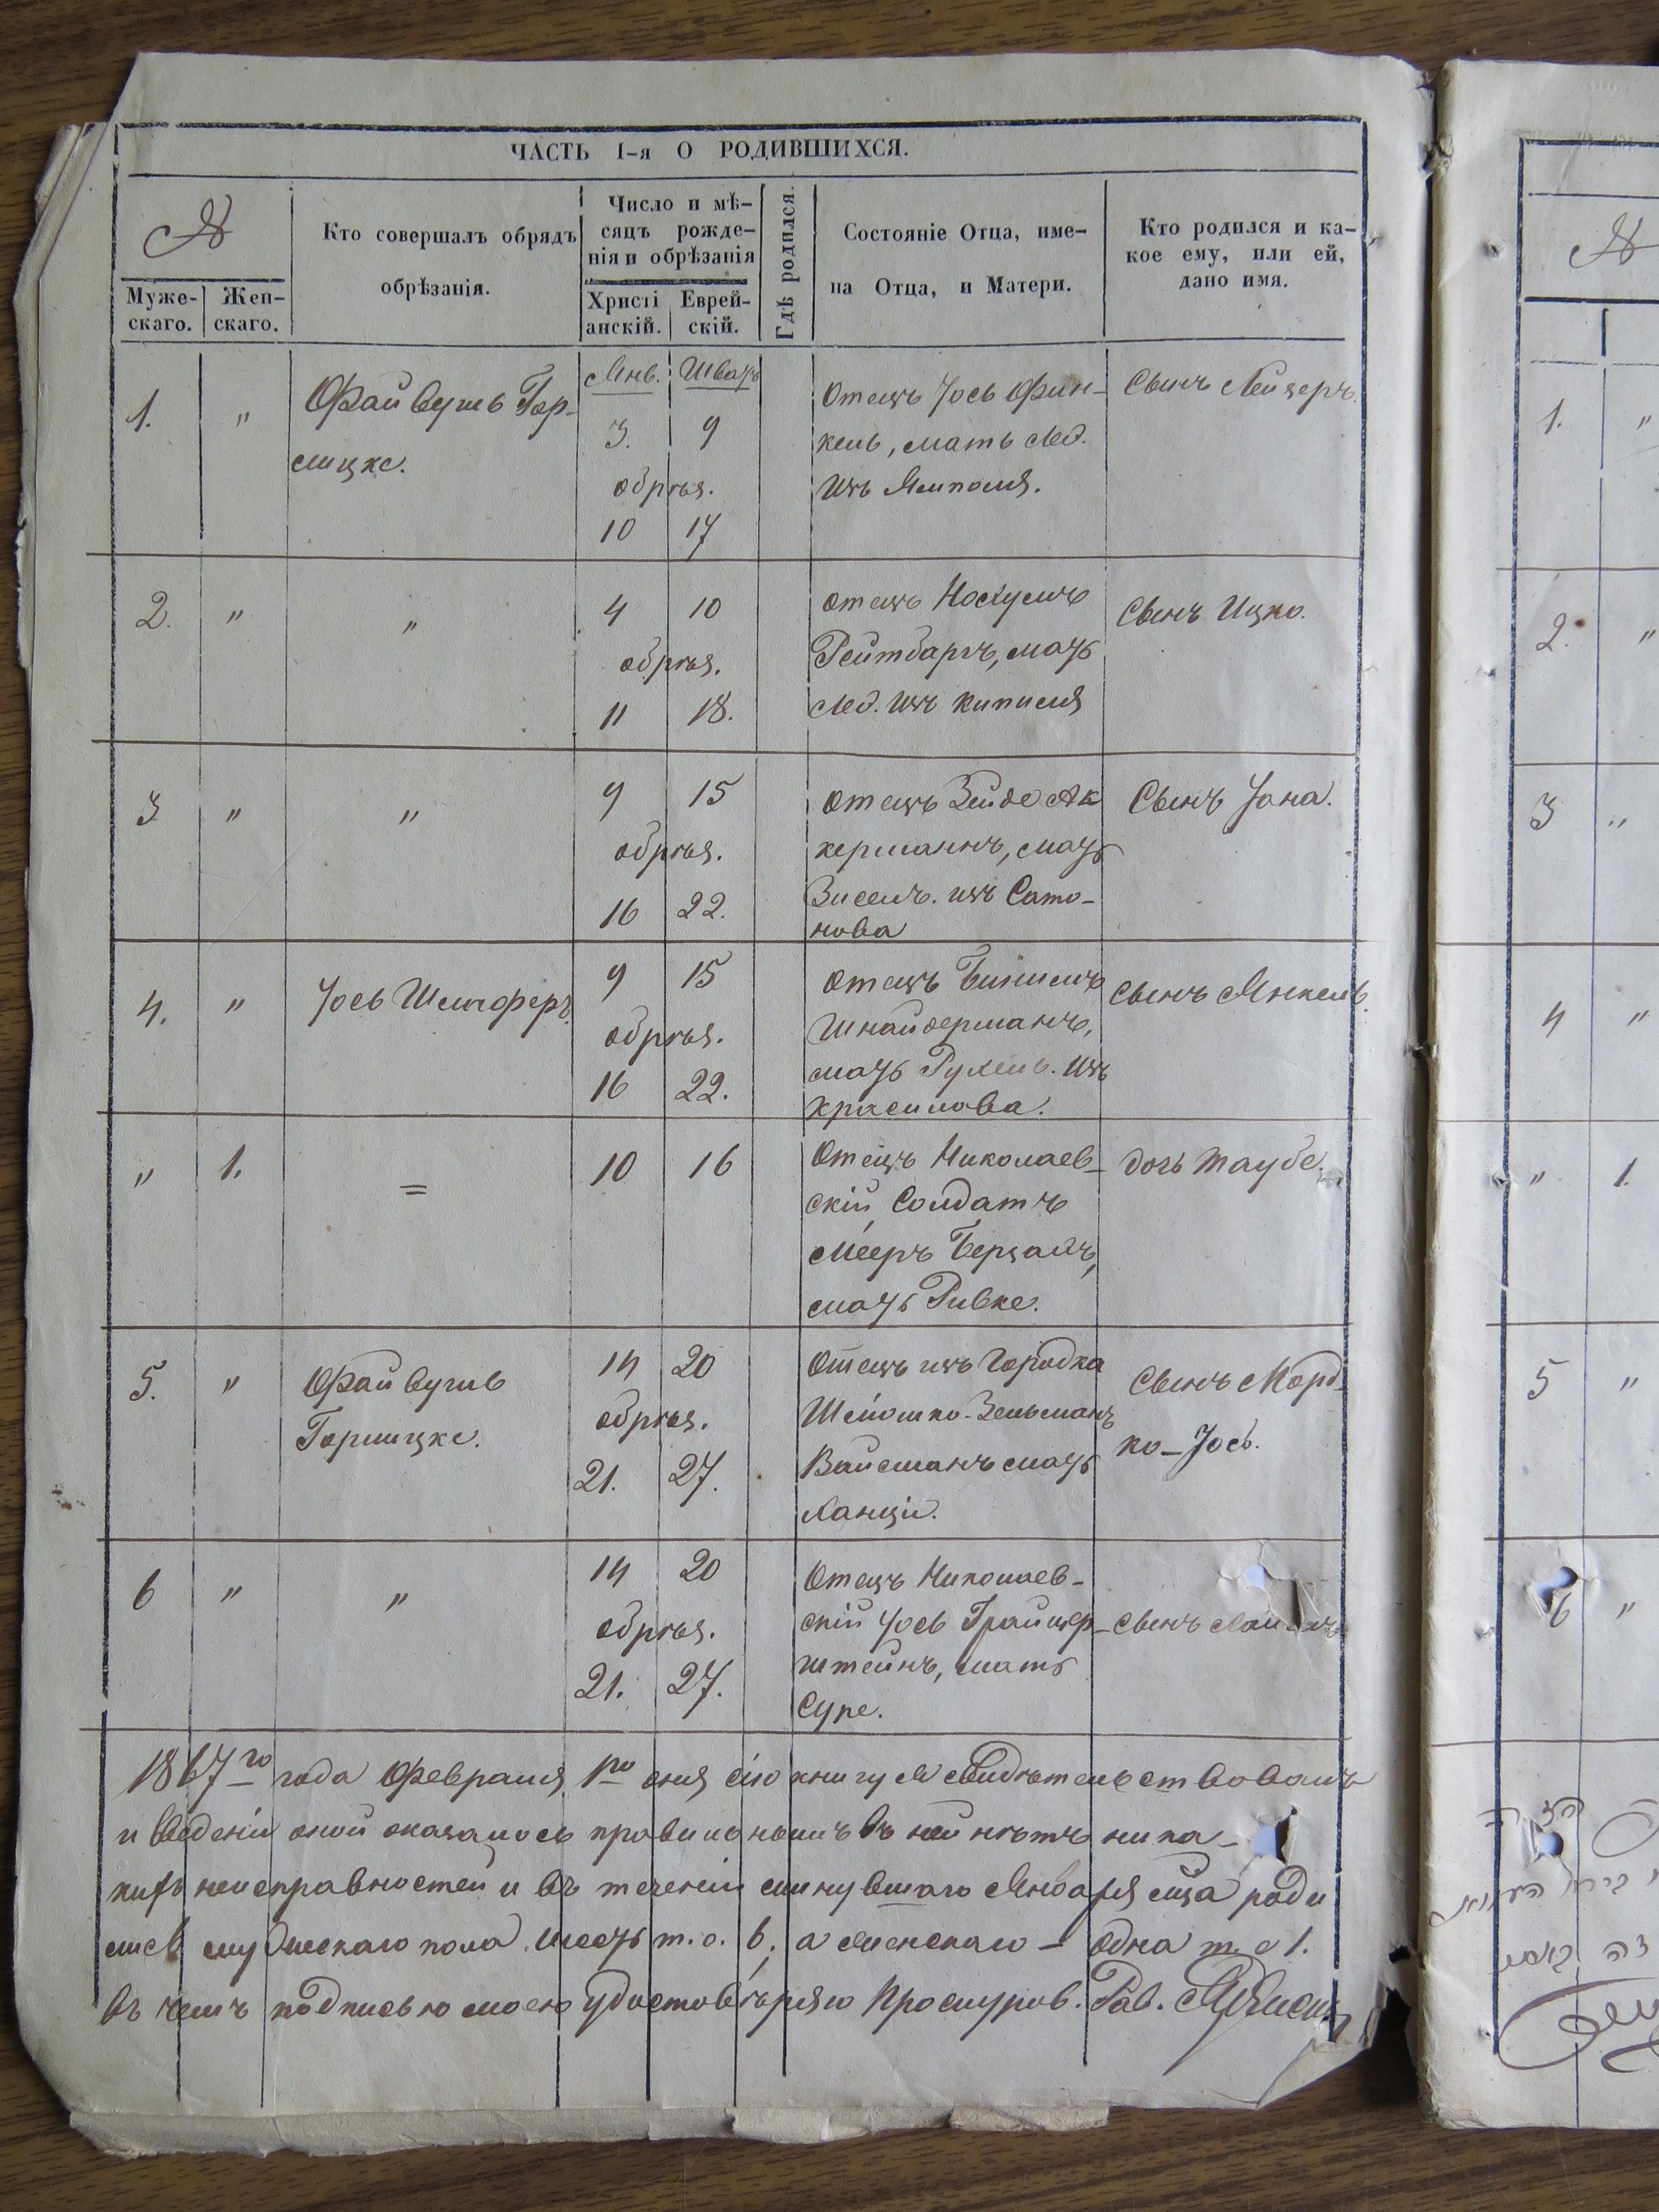 ЧАСТЬ I-я О РОДИВШИХСЯ.
№
Муже-
скаго.
Жен-
скаго.
Кто совершалъ обрядъ
обрѣзанія.
Число и мѣ-
сяцъ рожде-
нія и обрѣзанія
Христі
анскій.
Еврей-
скій.
Гдѣ родился.
Состояніе Отца, име-
на Отца, и Матери.
Кто родился и ка-
кое ему, или ей,
дано имя.
1. "
Файвушъ Гор-
лицке.
Янв. Шватъ
3. 9
обрѣз.
10 17
Отецъ Іось Фин-
кель, мать
изъ Ямполя.
Сынъ Лейзеръ.
2. " "
4 10
обрѣз.
11 18.
отецъНосхумъ
Рейтбаргъ, мать
изъ
Сынъ Ицко.
3 " "
9 15
обрѣз.
16 22.
отецъ Зейде Ак
керманнъ, мать
изъ Сата-
нова
Сынъ Іона.
4. "
Іось
9 15
обрѣз.
16 22.
отецъ
Шнайдерманъ,
мать Рухель. изъ
Красилова.
сынъ Янкель.
" 1. =
10 16
Отецъ Николаев-
скій Солдатъ
Мееръ
мать Ривке.
дочь Таубе.
5. "
Файвушъ
Горлицке.
14 20
обрѣз.
21. 27.
Отецъ изъ Городка
Шлiомко-Зельманъ
Вайсманъ мать
Ханци.
Сынъ Морд-
ко-Іось.
6 " "
14 20
обрѣз.
21. 27.
Отецъ Николаев-
скій Іось Грайцер-
штейнъ, мать
Суре.
сынъ
1867го года Февраля 1го дня сію книгу я свидѣтельствовалъ
и веденіи оной оказалось правильнымъ въ ней нѣтъ ника-
кихъ неисправностей и въ теченіи минувшаго Января мца роди
лись мужескаго пола шесть т. е. 6, а женскаго - одна т. е 1.
въ чемъ подписью моею удостовѣряю Проскуров. Рав.
№
1. "
2. "
3 "
4 "
" 1.
5 "
6 "